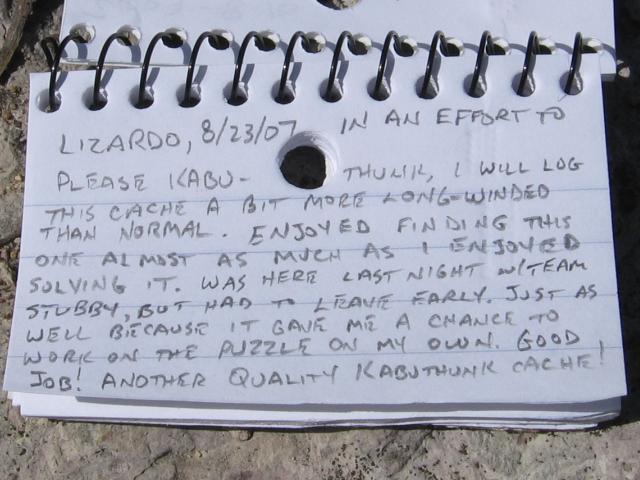 LIZARDO, 8/23/07 IN AN EFFORT TO
PLEASE KABU- THUNK, I WILL LOG
THIS CACHE A BIT MORE LONG-WINDED
THAN NORMAL. ENJOYED FINDING THIS
ONE ALMOST AS MUCH AS I ENJOYED
SOLVING IT. WAS HERE LAST NIGHT W/TEAM
STUBBY, BUT HAD TO LEAVE EARLY. JUST AS
WELL BECAUSE IT GAVE ME A CHANCE TO
WORK ON THE PUZZLE ON MY OWN. GOOD
JOB! ANOTHER QUALITY KABUTHUNK CACHE!